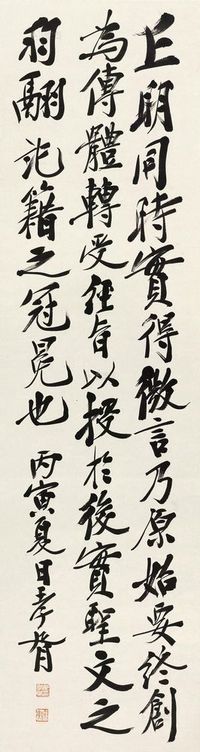 丘明同時實得微言乃原始要終創
為傳體轉受經旨以授於後實聖文之
羽翮記籍之冠冕也 丙寅夏日孝胥